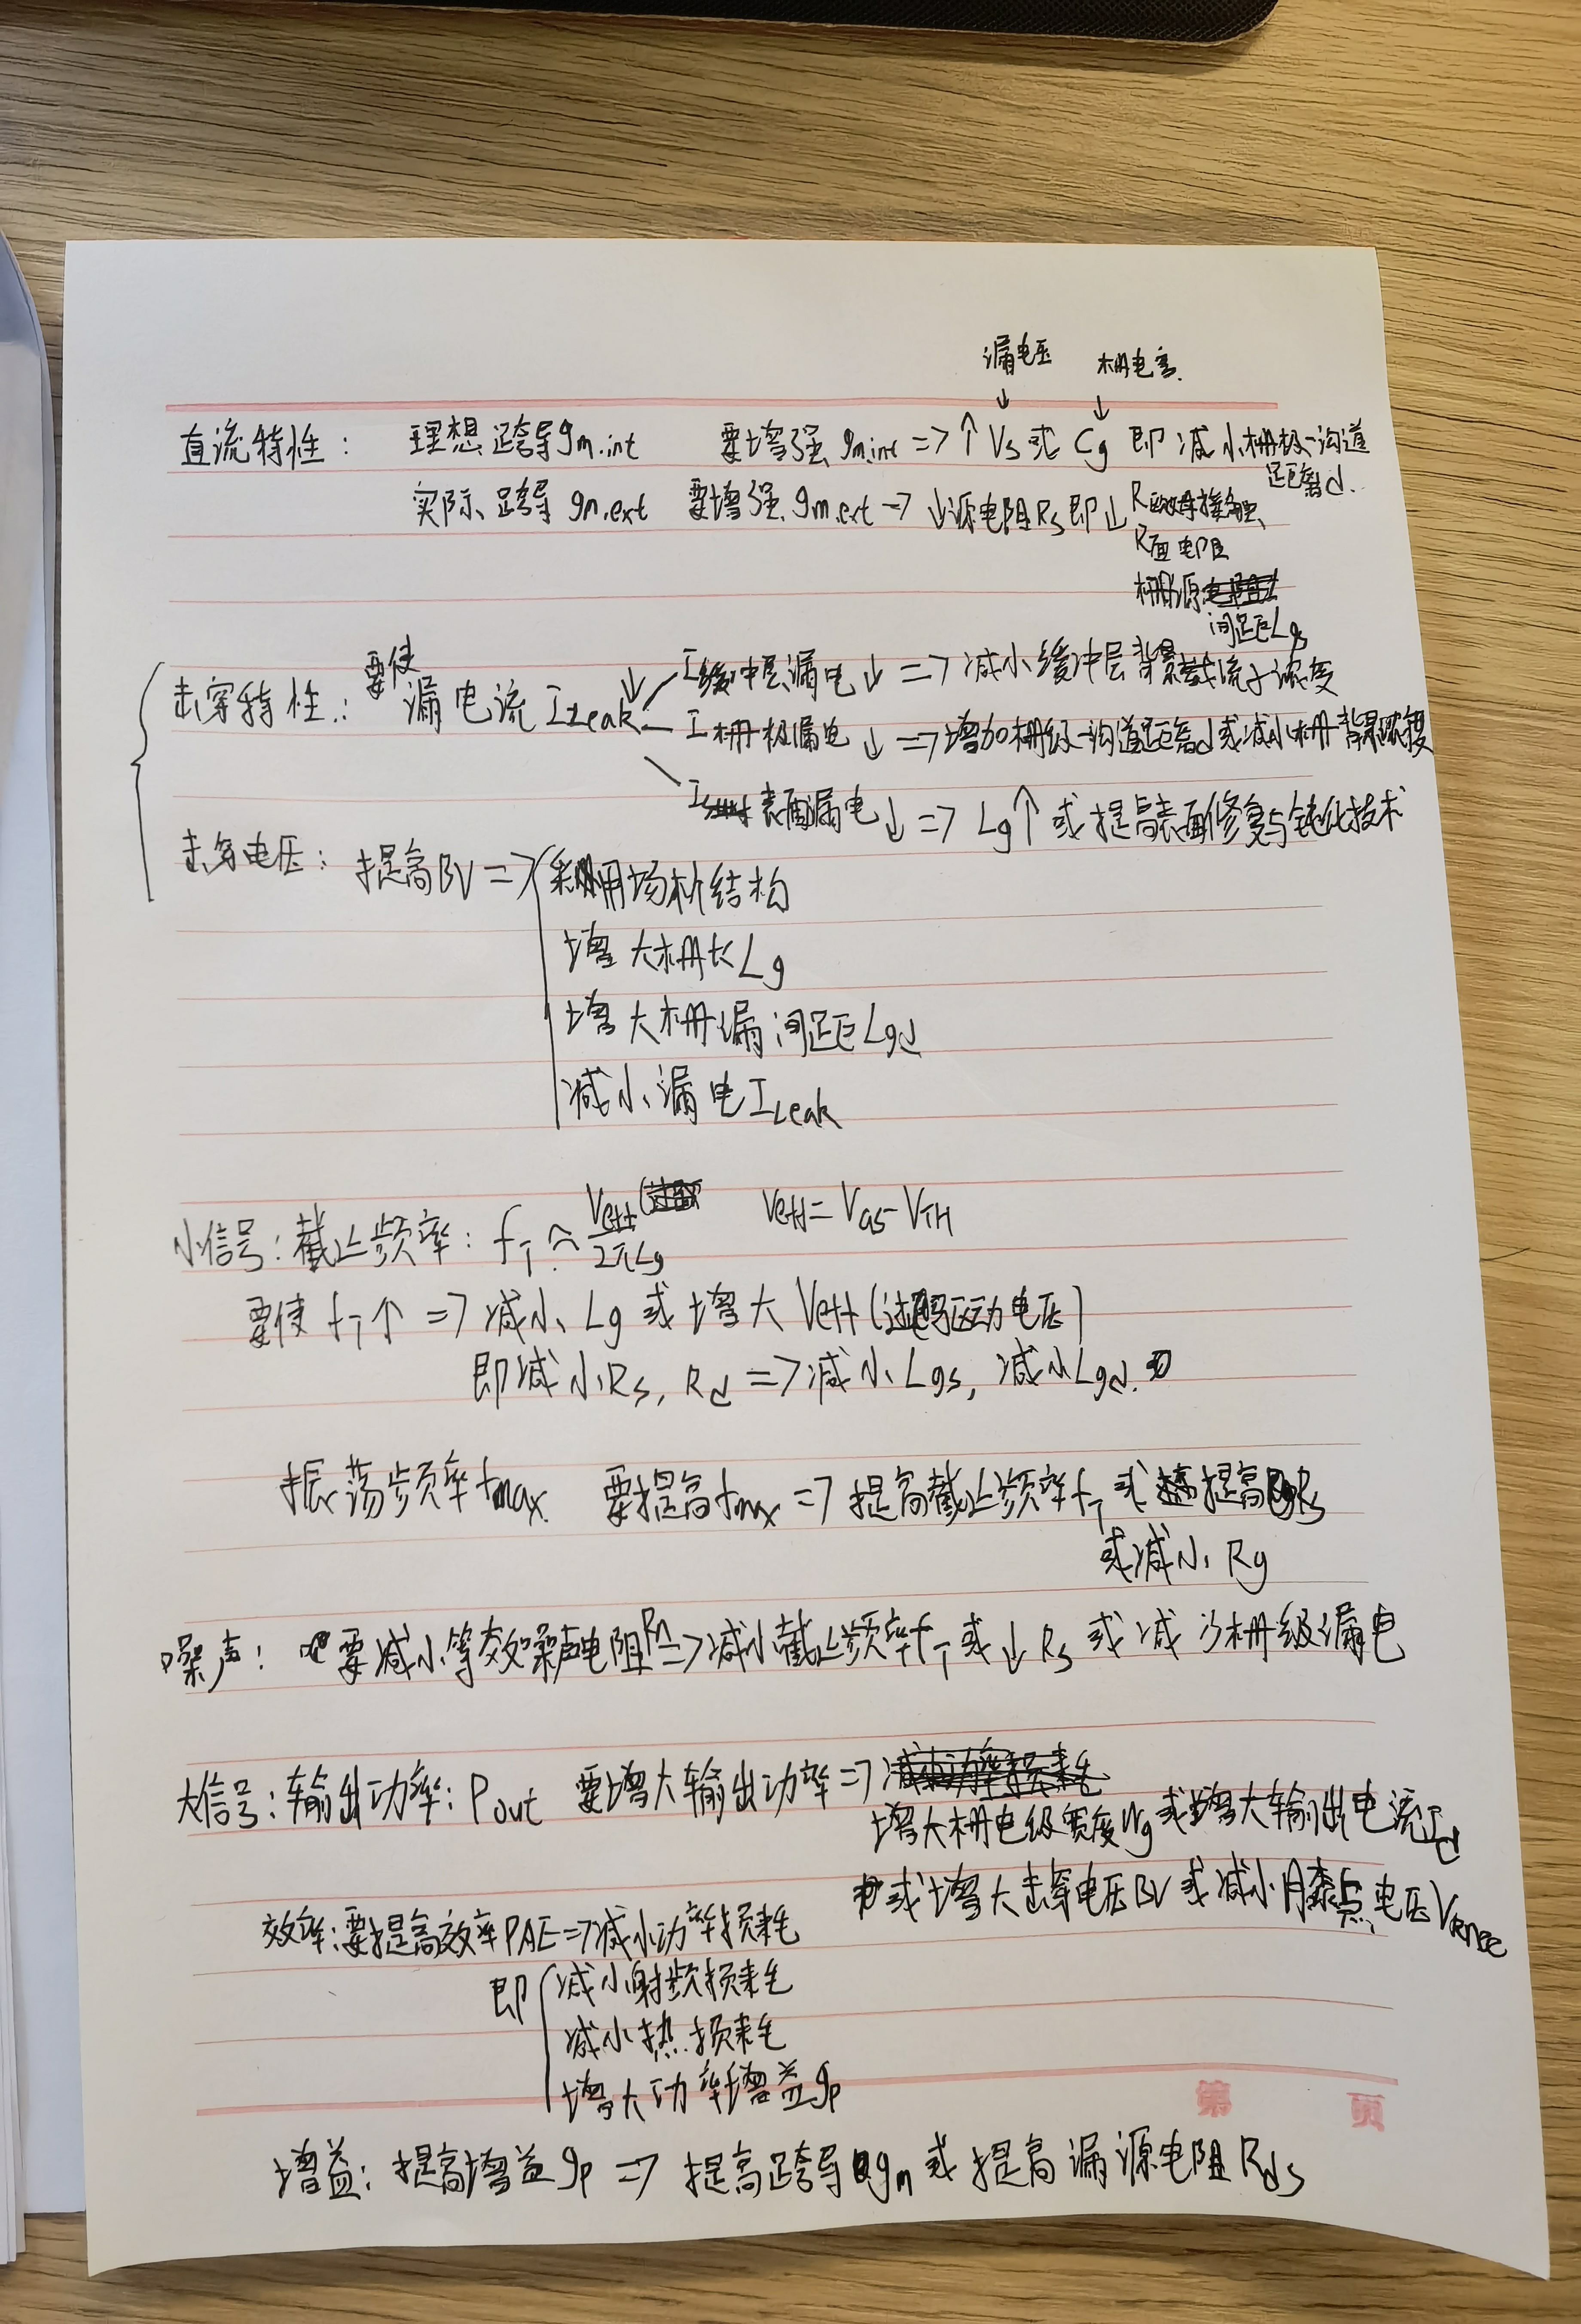 漏电压 栅电容
直流特性: 理想跨导gm.int 要增强 gm.int => ↑ Vs 或 Cg 即 减小栅极-沟道
距离d.
实际跨导 gm.ext 要增强 gm.ext => ↓源电阻Rs 即↓ R欧姆接触
R面电阻
栅源
间距Lgs
击穿特性: 要使 漏电流 ILeak ↓
I缓冲层漏电 ↓ => 减小缓冲层背景载流子浓度
I栅极漏电 ↓ => 增加栅级-沟道距离d 或减小栅背景浓度
I表面漏电 ↓ => Lg↑ 或提高表面修复与钝化技术
击穿电压: 提高BV => 利用场板结构
增大栅长Lg
增大栅漏间距Lgd
减小漏电ILeak
小信号: 截止频率: fT ≈ Veff/2πLg Veff = VGS - VTH
要使 fT↑ => 减小 Lg 或增大 Veff (过驱动电压)
即减小Rs, Rd => 减小Lgs, 减小Lgd.
振荡频率fmax 要提高fmax => 提高截止频率fT 或 提高Rs
或减小 Rg
噪声: 要减小等效噪声电阻Rn => 减小截止频率fT 或↓ Rs 或 减少栅级漏电
大信号: 输出功率: Pout 要增大输出功率 =>
增大栅电级宽度Wg 或增大输出电流Id
或增大击穿电压BV 或减小膝点电压Vknee
效率: 要提高效率PAE => 减小功率损耗
即 减小射频损耗
减小热损耗
增大功率增益gp
第 页
增益: 提高增益gp => 提高跨导gm 或提高漏源电阻Rds